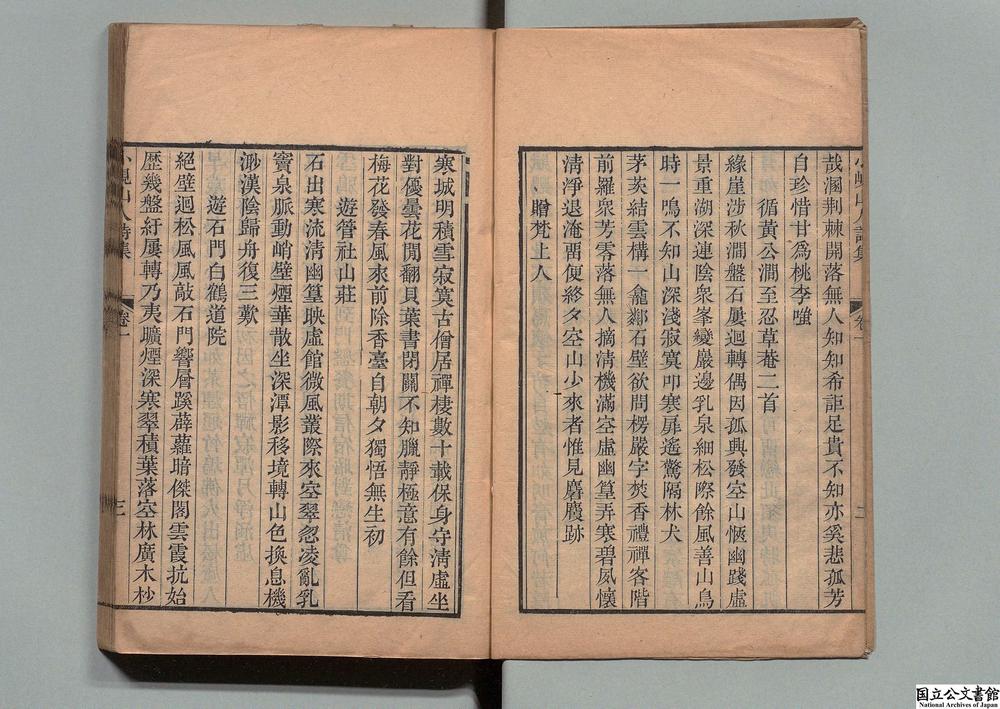 哉溷荆棘開落無人知知希詎足貴不知亦奚悲孤芳
自珍惜甘爲桃李嗤
循黃公澗至忍草菴二首
緣崖涉秋澗盤石屢迴轉偶因孤興發空山愜幽踐虛
景重湖深連陰衆峯變巖邊乳泉細松際餘風善山鳥
時一鳴不知山深淺寂寞叩寒扉遙驚隔林犬
茅茨結雲構一龕鄰石壁欲問楞嚴字焚香禮禪客階
前羅衆芳零落無人摘清機滿空虛幽篁弄寒碧夙懷
清淨退淹畱便終夕空山少來者惟見麏麚跡
贈梵上人
寒城明積雪寂寞古僧居禪棲數十載保身守淸虛坐
對優曇花閒翻貝葉書閉關不知臘靜極意有餘但看
梅花發春風來前除香臺自朝夕獨悟無生初
遊管社山莊
石出寒流淸幽篁映虛館微風叢際來空翠忽凌亂乳
竇泉脈動峭壁煙華散坐深潭影移境轉山色換息機
渺漢陰歸舟復三歎
遊石門白鶴道院
絕壁迴松風風敲石門響層蹊薜蘿暗傑閣雲霞抗始
歷幾盤紆屢轉乃夷曠煙深寒翠積葉落空林廣木杪
小峴山人詩集
卷一
二
小峴山人詩集
卷一
三
国立公文書館
National Archives of Japan